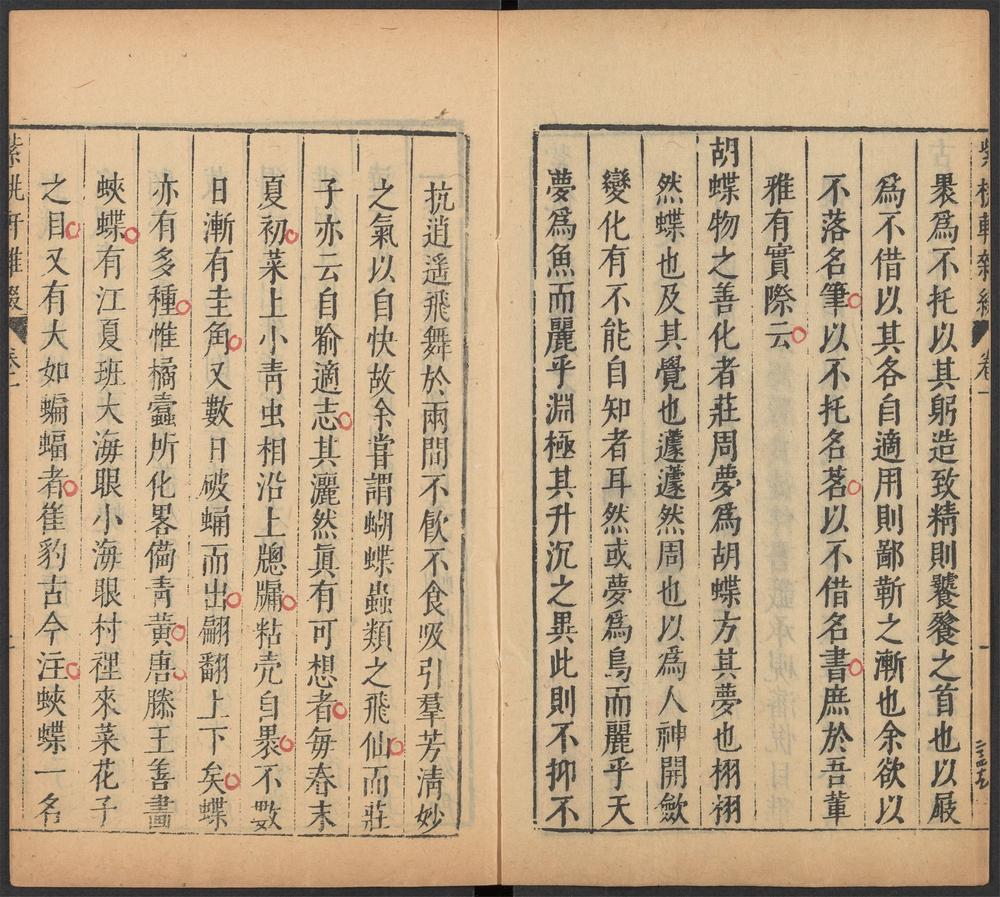 紫桃軒雜綴 卷一 一
褁爲不托以其躬造致精則饕餮之首也以屐
爲不借以其各自適用則鄙靳之漸也余欲以
不落名筆以不托名茗以不借名書庶於吾輩
雅有實際云
胡蝶物之善化者莊周夢爲胡蝶方其夢也栩栩
然蝶也及其覺也蘧蘧然周也以爲人神開斂
變化有不能自知者耳然或夢爲鳥而麗乎天
夢爲魚而麗乎淵極其升沉之異此則不抑不
抗逍遥飛舞於兩間不飲不食吸引羣芳淸妙
之氣以自快故余嘗謂蝴蝶蟲類之飛仙而莊
子亦云自喻適志其灑然眞有可想者每春末
夏初菜上小靑虫相沿上牕牖粘壳自褁不數
日漸有圭角又數日破蛹而出翩翻上下矣蝶
亦有多種惟橘蠧所化畧僃靑黄唐滕王善畵
蛺蝶有江夏班大海眼小海眼村裡來菜花子
之目又有大如蝙蝠者崔豹古今注蛺蝶一名
紫桃軒雜綴 卷一